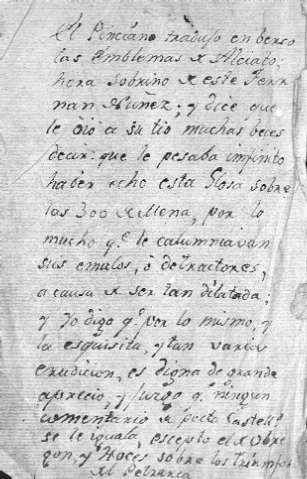 El Pinciano tradujo en berso
las Emblemas de Alciato;
hera sobrino de este Fern
nan Nuñez; y dice que
le oió a su tio muchas beces
decir: que le pesaba infinito
haber echo esta Glosa sobre
las 300 de Mena, por lo
mucho q.e le calumniavan
sus emulos, ó detractores,
a causa de ser tan dilatada;
y Yo digo q.e por lo mismo, y
la esquisita, y tan varia
erudicion, es digna de grande
aprecio, y juzgo q.e ningun
comentario de poeta Castell.o
se le iguala, escepto el de Obre
gon, y Hoces sobre los Triunfos
del Petrarca